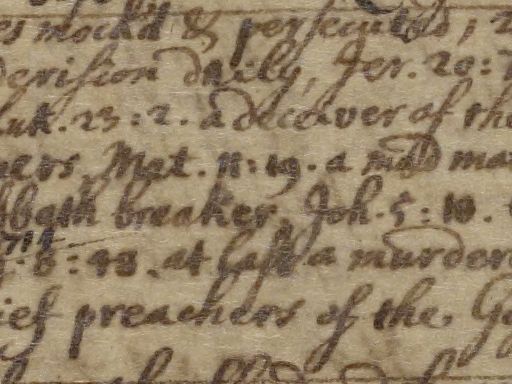 es mock'd & persecuted, 2
derision daily, Jer. 20: 7
Luk. 23: 2. a deceiver of the
ners, Mat. 11: 19. a mad man
bbath breaker, Joh. 5: 18.
: 8: 48. at last a murdere
ief preachers of the Go